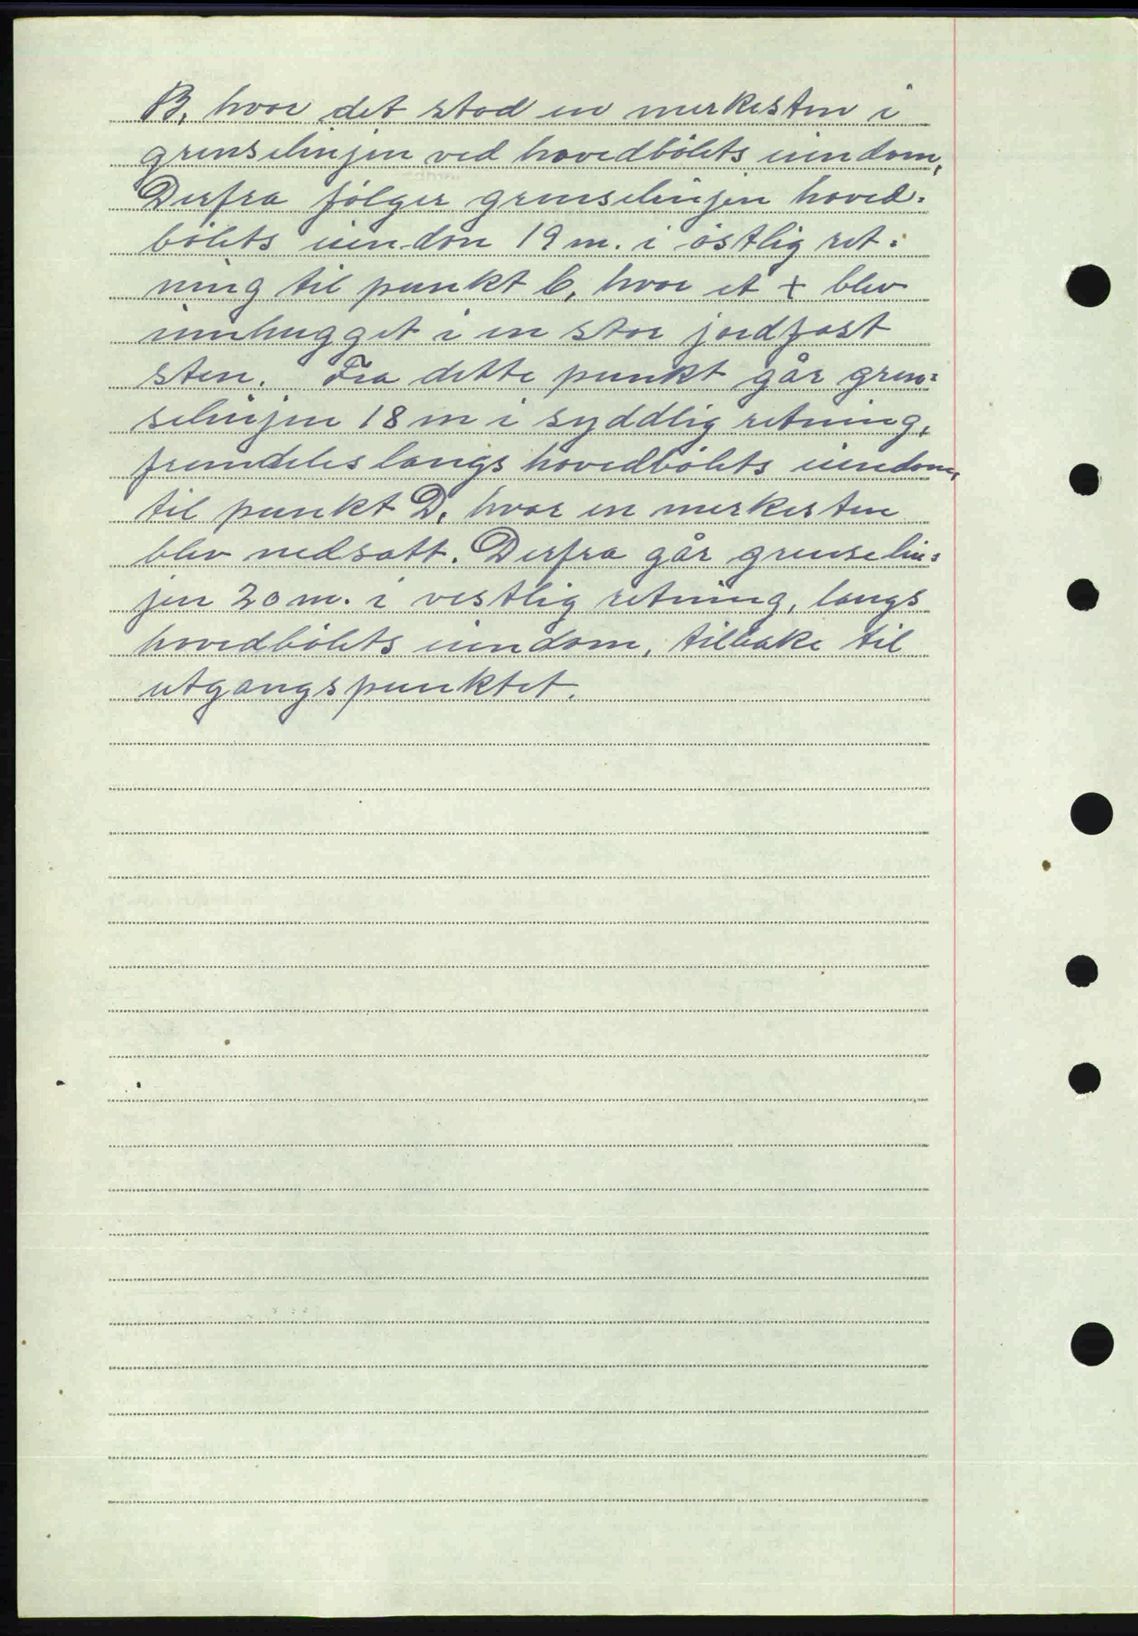 B, hvor det stod en merkesten i
grenselinjen ved hovedbölets eiendom,
Derfra følger grenselinjen hoved=
bölets eiendon 19 m. i östlig ret=
ning til punkt C, hvor et + blev
innhugget i en stor jordfast
sten. Fra dette punkt går gren=
selinjen 18 m i syddlig retning,
fremdeles langs hovedbölets eiendom,
til punkt D, hvor en merkesten
blev nedsatt. Derfra går grenselin=
jen 20 m. i vestlig retning, langs
hovedbölets eiendom, tilbake til
utgangspunktet.